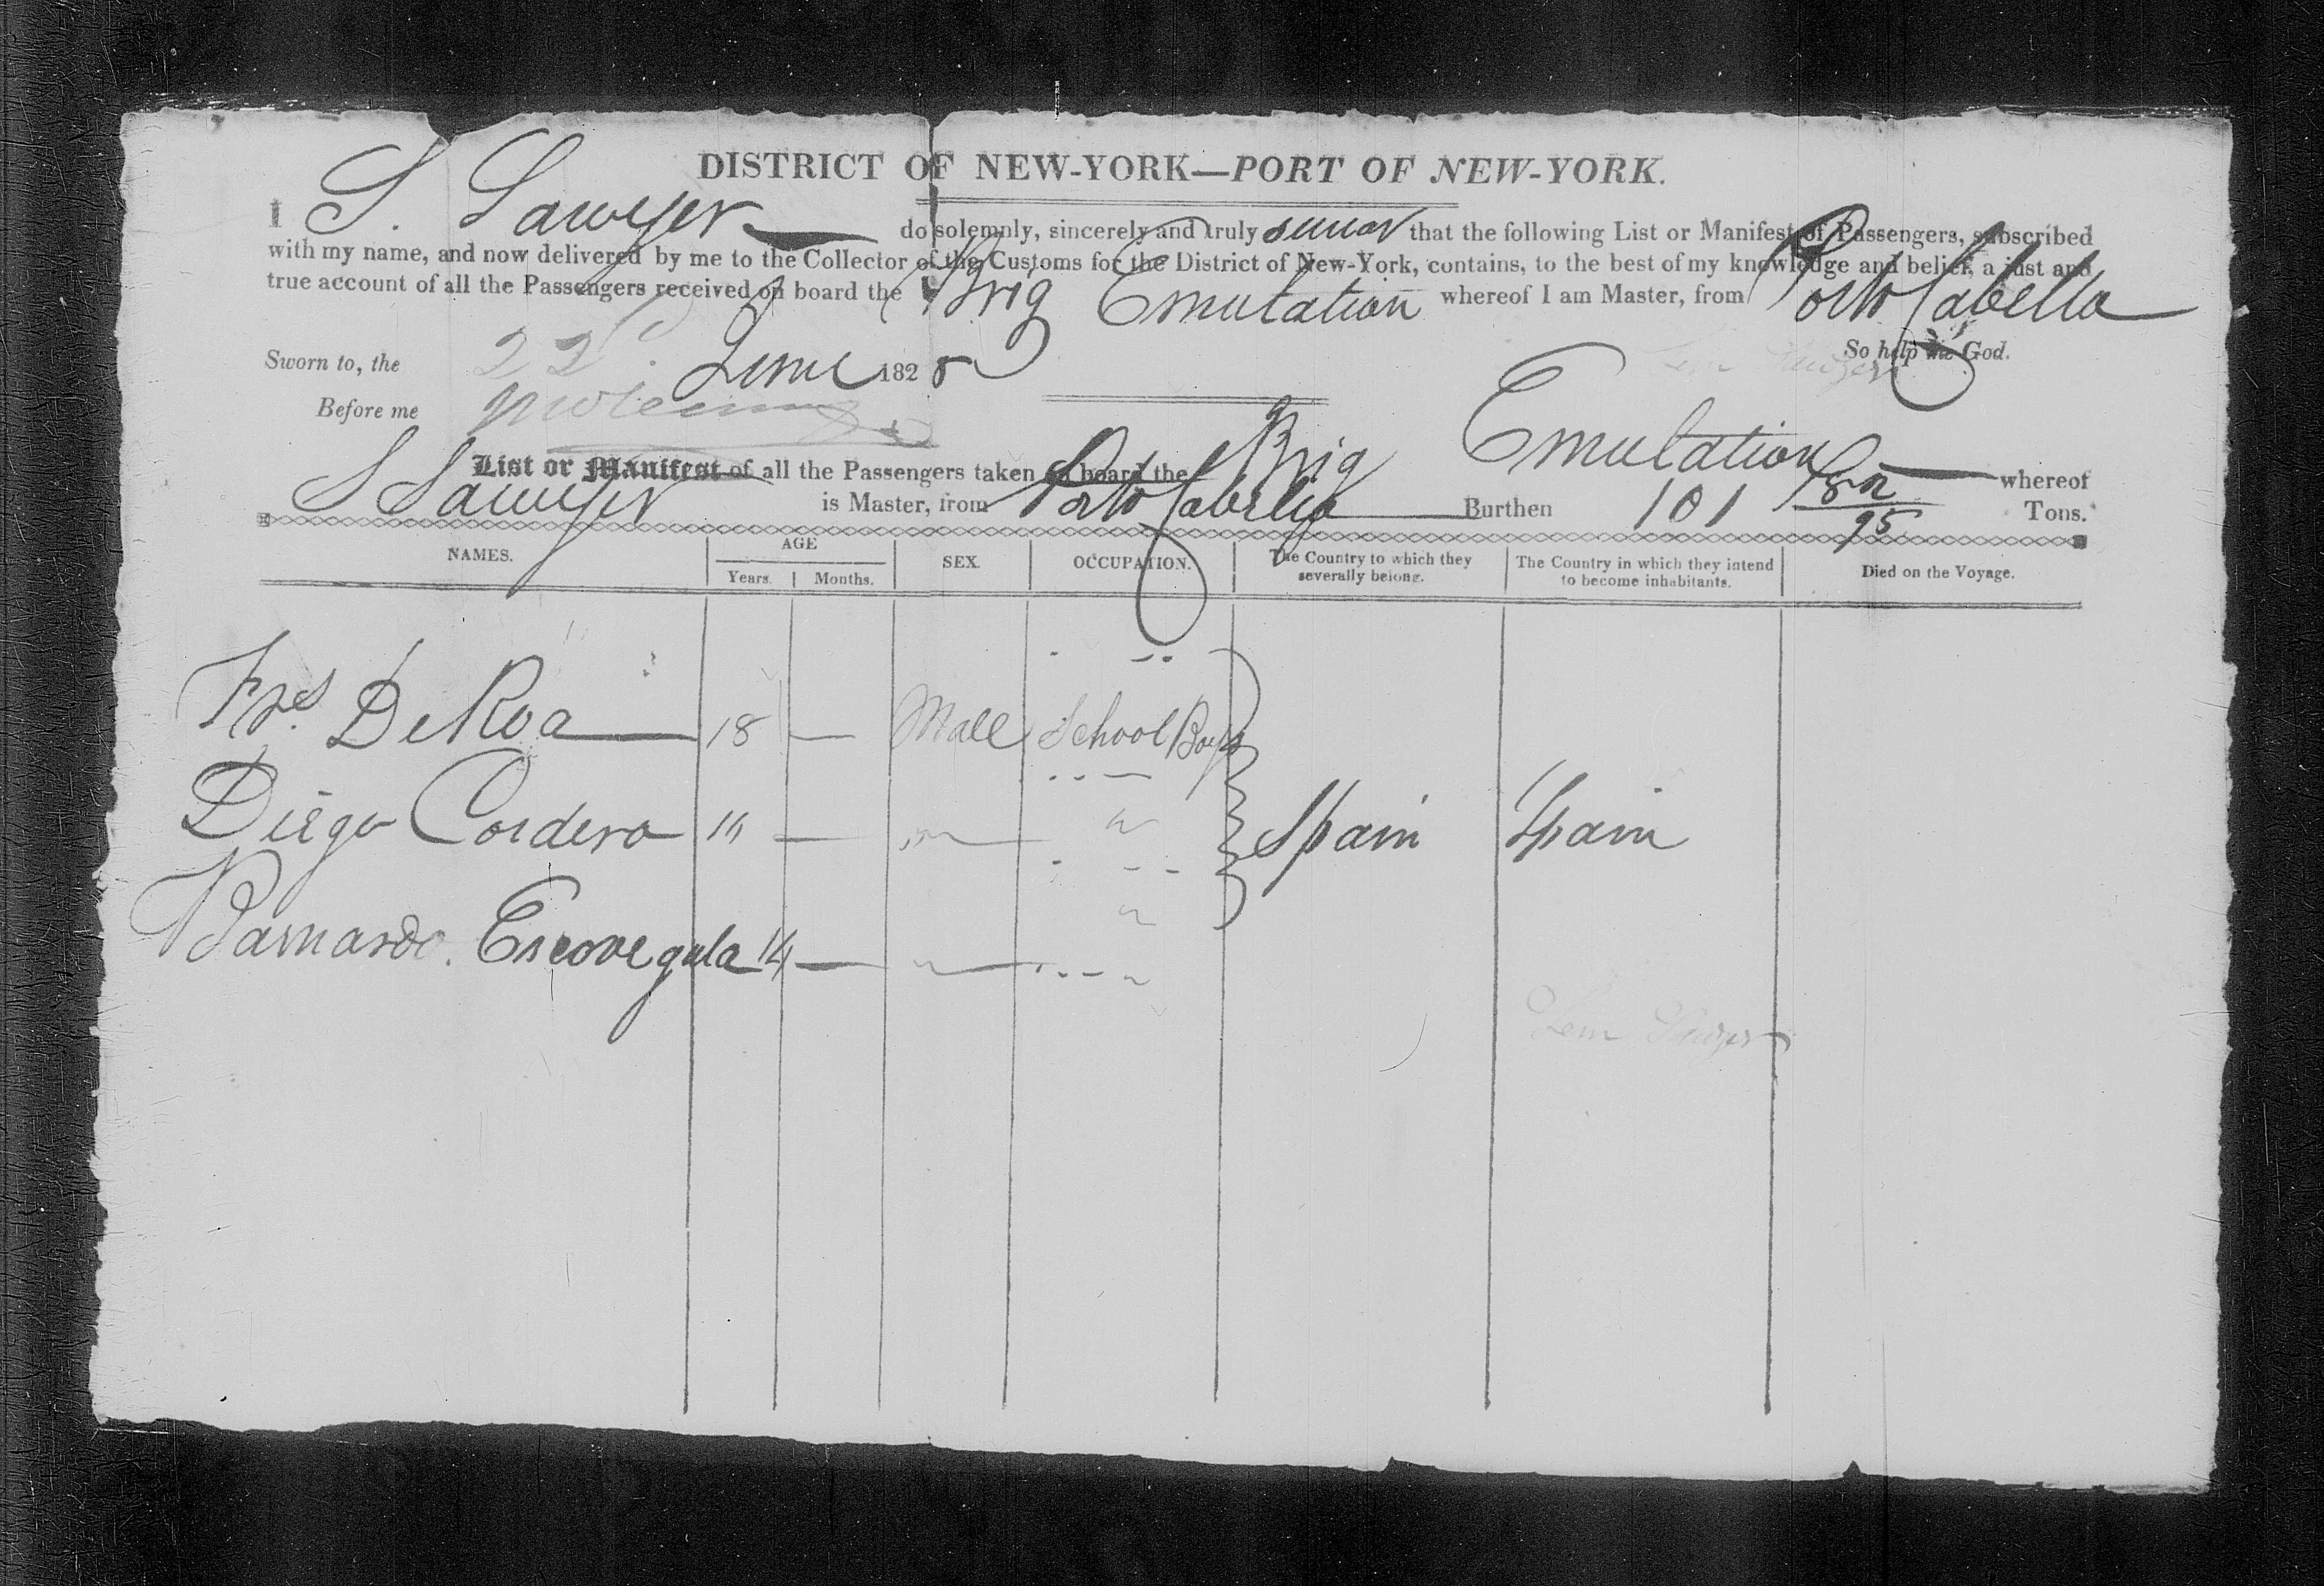 DISTRICT OF NEW-YORK—PORT OF NEW-YORK.
I S. Sawyer do solemnly, sincerely and truly swear that the following List or Manifest of Passengers, subscribed
with my name, and now delivered by me to the Collector of the Customs for the District of New-York, contains, to the best of my knowledge and belief, a just and
true account of all the Passengers received on board the Brig Emulation whereof I am Master, from Porto Cabello
So help me God.
Sworn to, the 22d June 1828
Before me
List or Manifest of all the Passengers taken on board the Brig Emulation whereof
S Sawyer is Master, from Porto Cabello Burthen 101 Tons.
95
NAMES. AGE SEX. OCCUPATION. The Country to which they severally belong. The Country in which they intend to become inhabitants. Died on the Voyage.
Years. Months.
DeRoa 18 — Male School Boys
Diego Cordero 14 — " " Spain Spain
Barnardo. Escovegula 14 — " "
Lem Sawyer